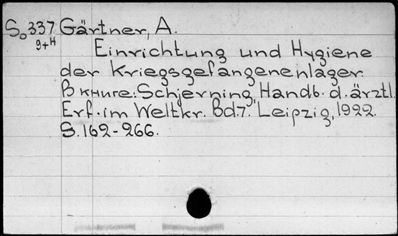 So337 Gärtner, A.
g+H
Einrichtung und Hygiene
der Kriegsgefangenenlager
В книге: Schjerning, Handb. d. ärztl.
Erf. im Weltkr. Bd.7. Leipzig, 1922.
S. 162-266.